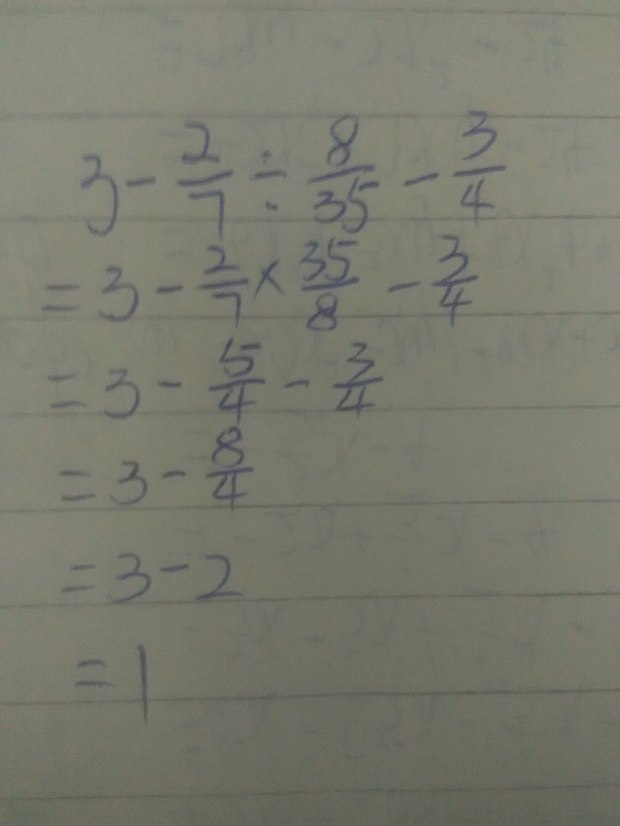 3 - 2/7 ÷ 8/35 - 3/4
= 3 - 2/7 × 35/8 - 3/4
= 3 - 5/4 - 3/4
= 3 - 8/4
= 3 - 2
= 1